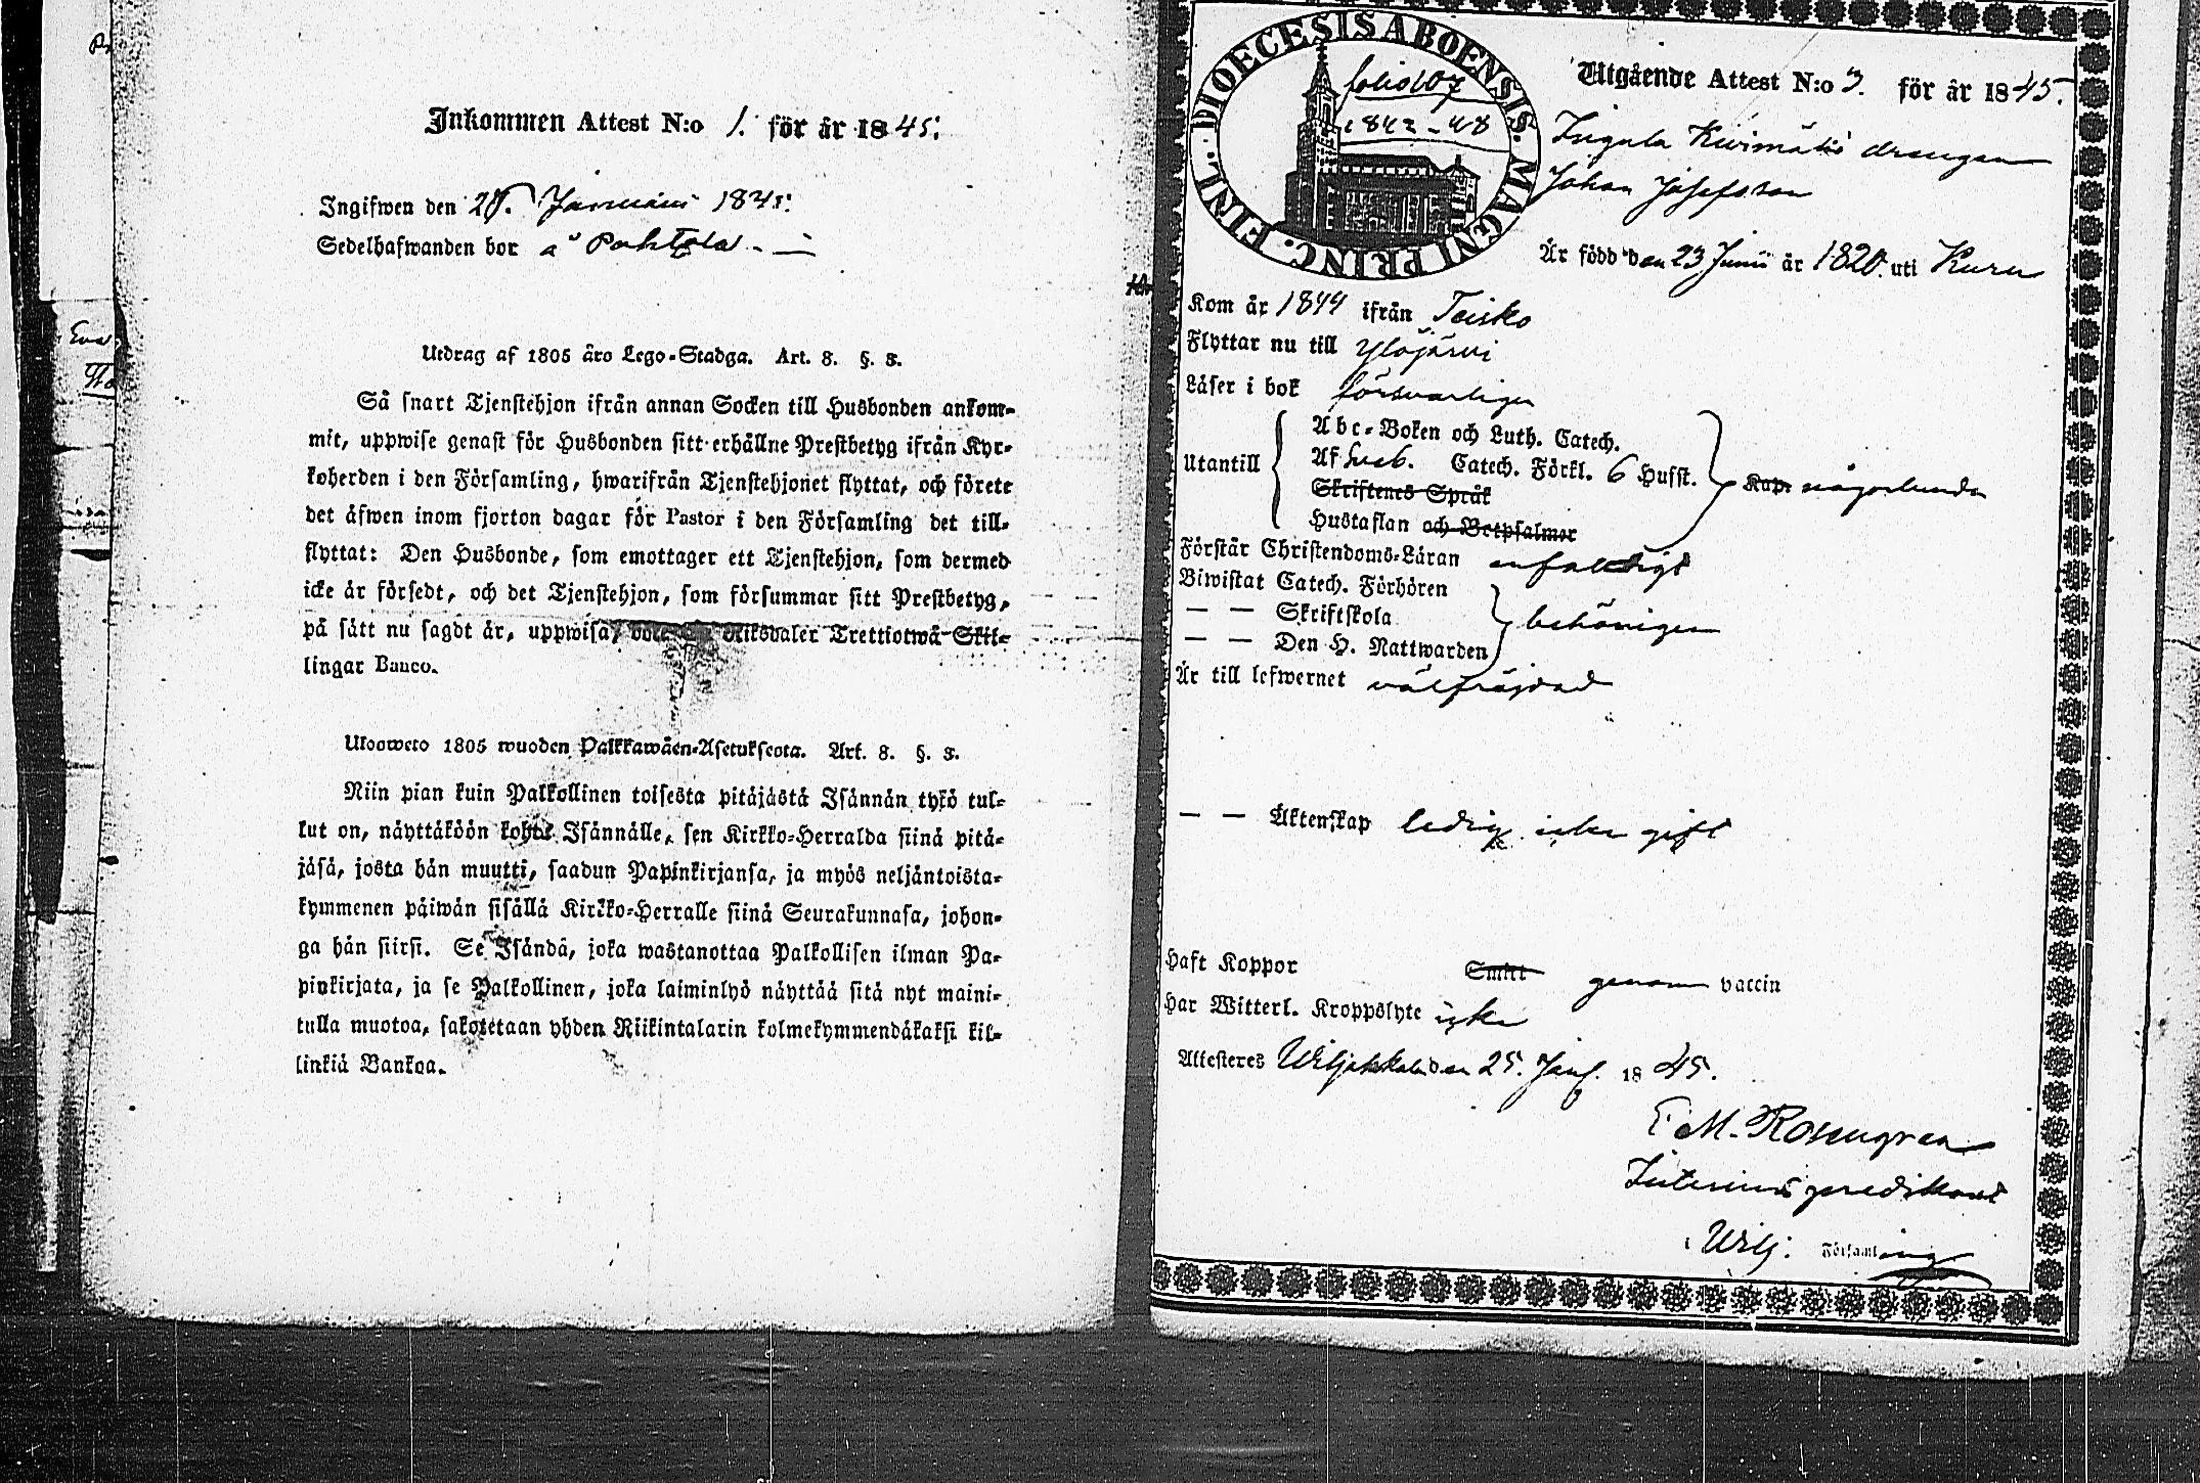 Inkommen Attest N:o 1. för år 1845.
Ingifwen den 28. Januarii 1845.
Sedelhafwanden bor å Pohtola.
Utdrag af 1805 års Lego-Stadga. Art. 8. §. 3.
Så snart Tjenstehjon ifrån annan Socken till Husbonden ankom-
mit, uppwise genast för Husbonden sitt erhållne Prestbetyg ifrån Kyr-
koherden i den Församling, hwarifrån Tjenstehjonet flyttat, och förete
det äfwen inom fjorton dagar för Pastor i den Församling det till-
flyttat: Den Husbonde, som emottager ett Tjenstehjon, som dermed
icke är försedt, och det Tjenstehjon, som försummar sitt Prestbetyg,
på sätt nu sagdt är, uppwisa, Riksdaler Trettiotwå Skil-
lingar Banco.
Uloswето 1805 wuoden Palkkawäen-Asetuksesta. Art. 8. §. 3.
Niin pian kuin Palkollinen toisesta pitäjästä Isännän tykö tul-
lut on, näyttäköön kohta Isännälle, sen Kirkko-Herralda siinä pitä-
jäsä, josta hän muutti, saadun Papinkirjansa, ja myös neljäntoista-
kymmenen päiwän sisällä Kirkko-Herralle siinä Seurakunnasa, johon-
ga hän siirsi. Se Isändä, joka wastanottaa Palkollisen ilman Pa-
pinkirjata, ja se Palkollinen, joka laiminlyö näyttää sitä nyt maini-
tulla muotoa, sakotetaan yhden Riikintalarin kolmekymmendäkaksi kil-
linkiä Bankoa.
DIOECESIS ABOENSIS. MAGNI PRINC. FINL.
folio 107
1842-48
Utgående Attest N:o 3. för år 1845.
Ingula Kivimäki drengen
Johan Josefsson
Är född den 23 Junii år 1820. uti Kuru
Kom år 1844 ifrån Teisko
Flyttar nu till Ylöjärvi
Läser i bok försvarligen
Utantill
Abc-Boken och Luth. Catech.
Af Sveb. Catech. Förkl. 6 Husst. Kap. någorlunda
Skriftenes Språk
Hustaflan och Botpsalmer
Förstår Christendoms-Läran enfaldigt
Biwistat Catech. Förhören
— — Skriftskola behörigen
— — Den H. Nattwarden
Är till lefwernet välfräjdad
— — Äktenskap ledig icke gift
Haft Koppor Smitt genom vaccin
Har Witterl. Kroppslyte icke
Attesteres Wiljakkala den 25. Janr. 1845.
F. M. Rosengren
Interims predikant
i Wilj. Församling